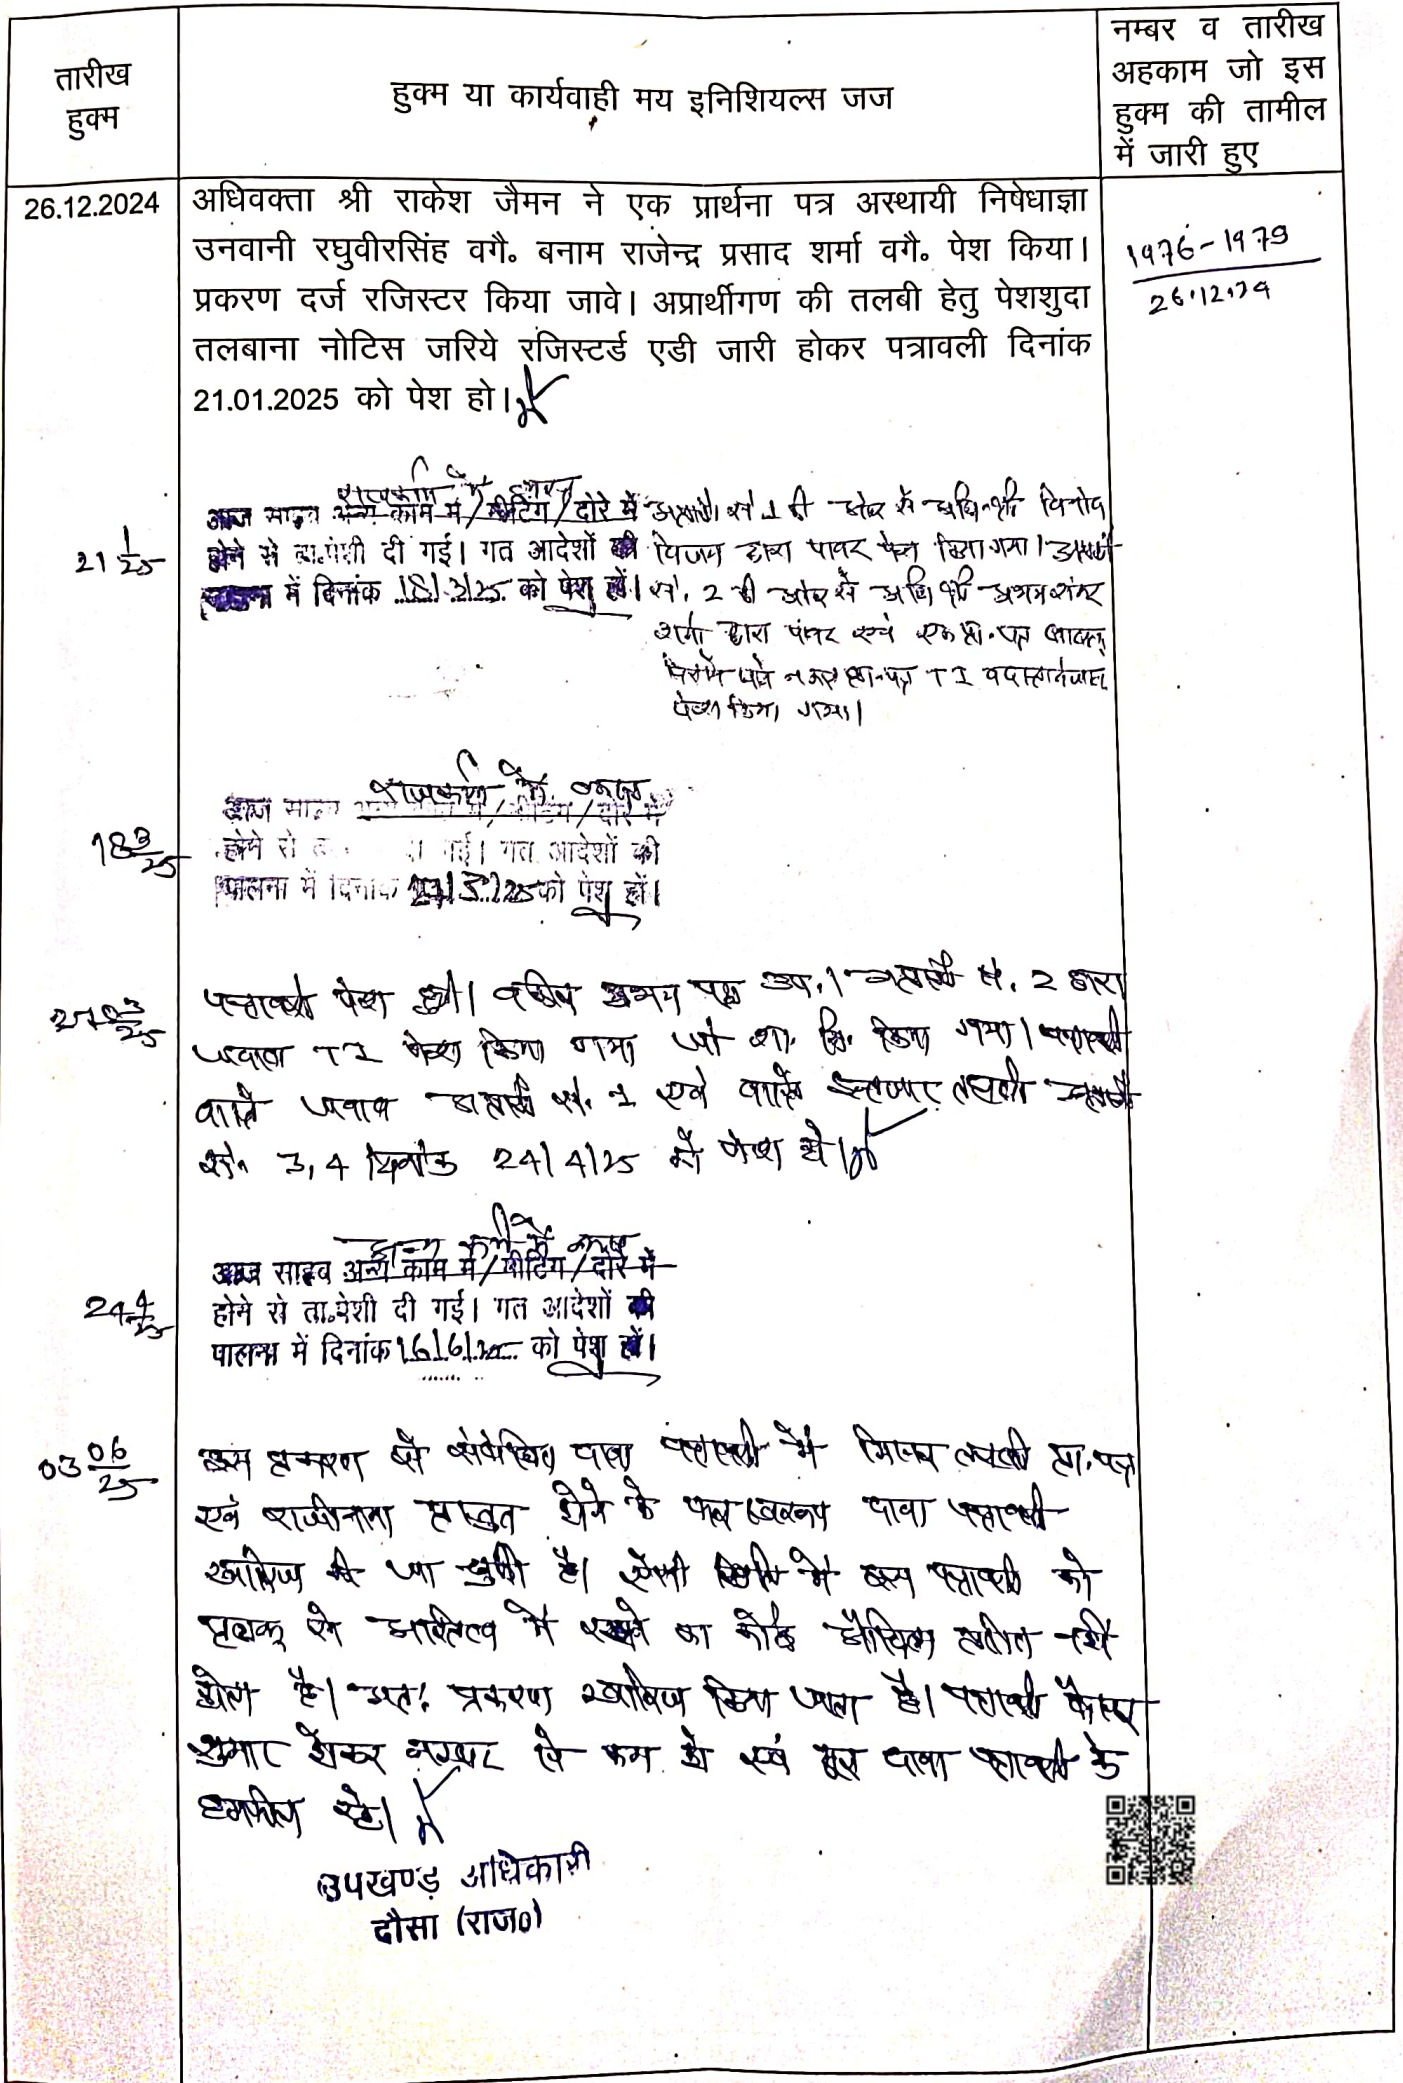 तारीख
हुक्म
हुक्म या कार्यवाही मय इनिशियल्स जज
नम्बर व तारीख
अहकाम जो इस
हुक्म की तामील
में जारी हुए
26.12.2024
अधिवक्ता श्री राकेश जैमन ने एक प्रार्थना पत्र अस्थायी निषेधाज्ञा
उनवानी रघुवीरसिंह वगै० बनाम राजेन्द्र प्रसाद शर्मा वगै० पेश किया।
प्रकरण दर्ज रजिस्टर किया जावे। अप्रार्थीगण की तलबी हेतु पेशशुदा
तलबाना नोटिस जरिये रजिस्टर्ड एडी जारी होकर पत्रावली दिनांक
21.01.2025 को पेश हो।
1976-1979
26.12.24
21 1/25
राजकार्य में व्यस्त
आज साहब अन्य काम में/मीटिंग/दोरे में
होने से ता.पेशी दी गई। गत आदेशों की
पालना में दिनांक 18/3/25 को पेश हों।
सं. 1 की ओर से अधि. श्री विनोद
विजय द्वारा पावर पेश किया गया।
सं. 2 की ओर से अधि. श्री
शर्मा द्वारा पावर एवं एक प्रा. पत्र
नकल प्रा. पत्र TI
पेश किया गया।
18 3/25
राजकार्य में व्यस्त
आज साहब अन्य काम में/मीटिंग/दोरे में
होने से ता. दी गई। गत आदेशों की
पालना में दिनांक 27/3/25 को पेश हों।
27 03/25
पत्रावली पेश हुई। वकील उभय पक्ष उप.। अप्रार्थी सं. 2 द्वारा
जवाब TI पेश किया गया जो शा. मि. किया गया। पत्रावली
वास्ते जवाब अप्रार्थी सं. 1 एवं वास्ते इन्तजार तलबी अप्रार्थी
सं. 3,4 दिनांक 24/4/25 को पेश हो।
24 4/25
अन्य कार्य में व्यस्त
आज साहब अन्य काम में/मीटिंग/दोरे में
होने से ता.पेशी दी गई। गत आदेशों की
पालना में दिनांक 16/6/25 को पेश हों।
03 06/25
इस प्रकरण से संबंधित दावा पत्रावली में तलबी प्रा. पत्र
एवं राजीनामा प्रस्तुत होने के फलस्वरूप दावा पत्रावली
खारिज की जा चुकी है। ऐसी स्थिति में इस पत्रावली को
पृथक से अस्तित्व में रखने का कोई औचित्य प्रतीत नहीं
होता है। अतः प्रकरण खारिज किया जाता है। पत्रावली फैसल
शुमार होकर नम्बर से कम हो एवं मूल दावा पत्रावली के
हमफीता रहे।
उपखण्ड अधिकारी
दौसा (राज०)